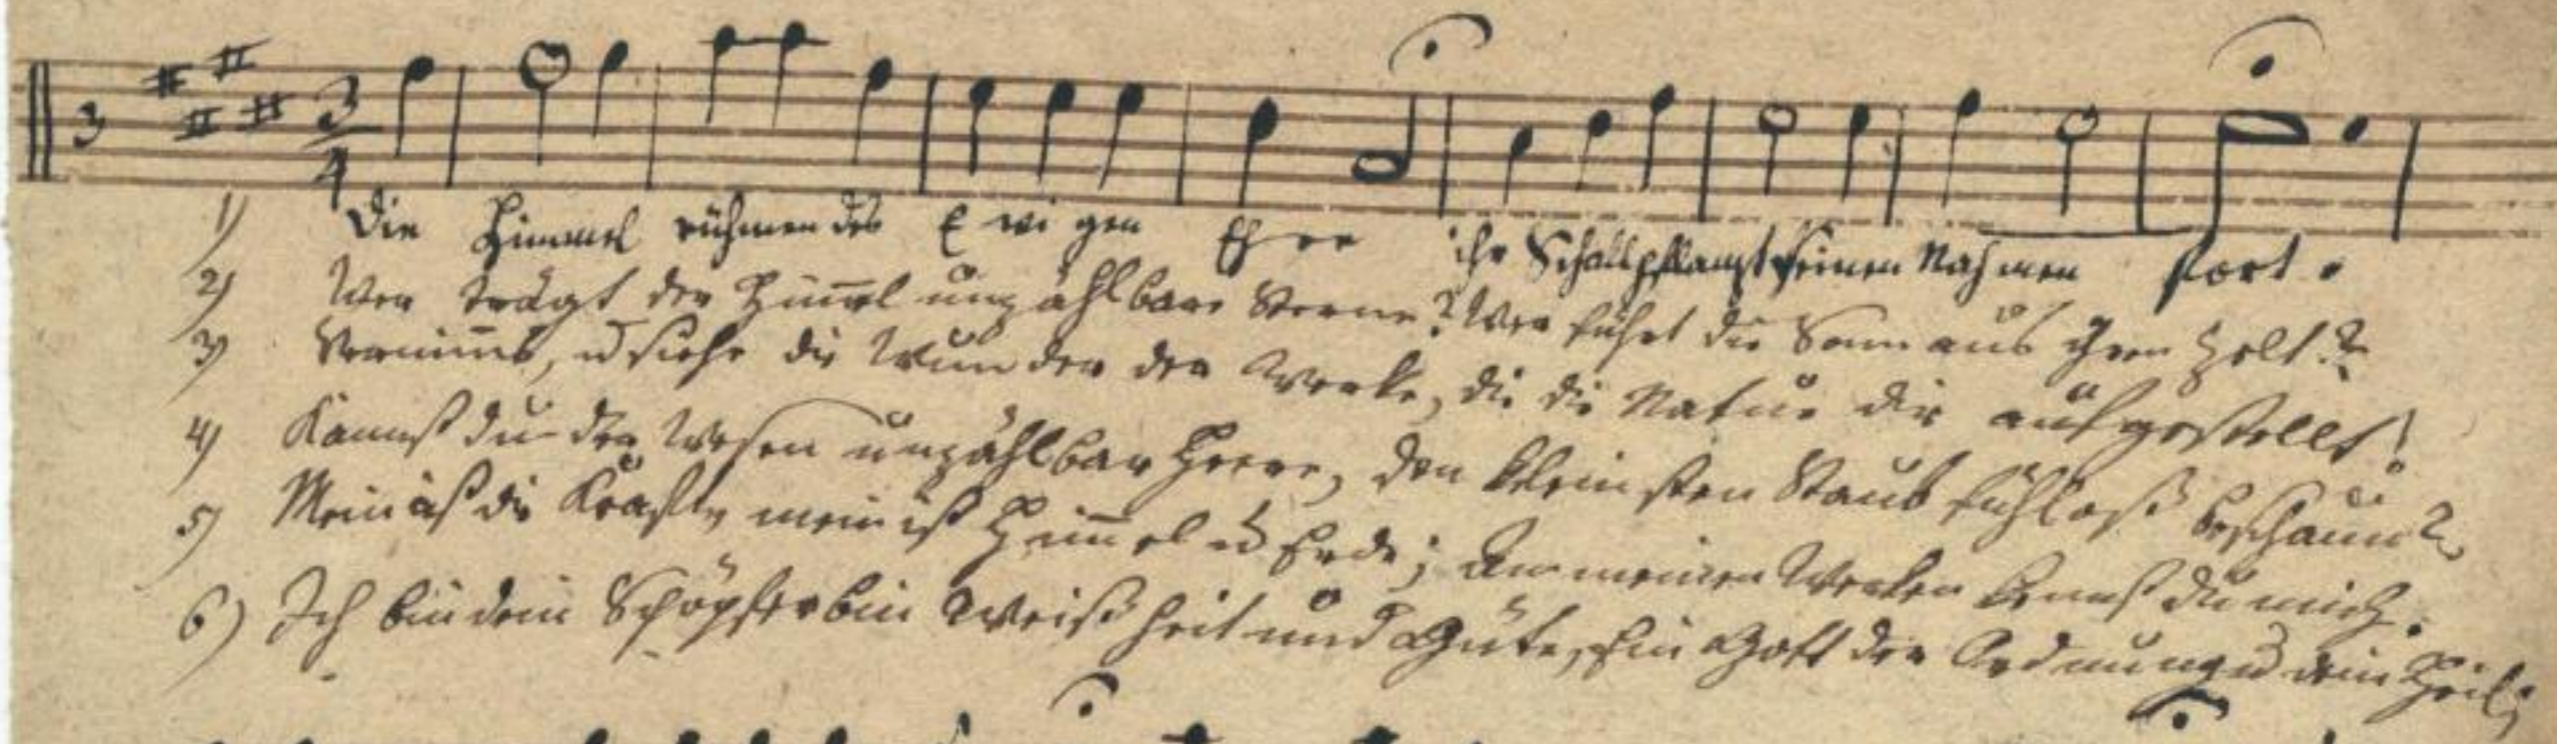 3 3/4
1) Die Himmel rühmen des E wi gen Ehre ihr Schall pflanzt seinen Nahmen fort.
2) Wer trägt der Himel unzählbare Sterne? Wer führt die Sonn aus ihrem Zelt?
3) Vernimms, u siehe die Wunder der Werke, die die Natur dir aufgestellt!
4) Kannst du der Wesen unzählbar Heere, den kleinsten Staub fühlloß beschaun?
5) Mein ist die Kraft, mein ist Himel u Erde; An meinen Werken kennst du mich.
6) Ich bin dein Schöpfer bin Weißheit und Güte, Ein Gott der Ordnung u dein Heil;